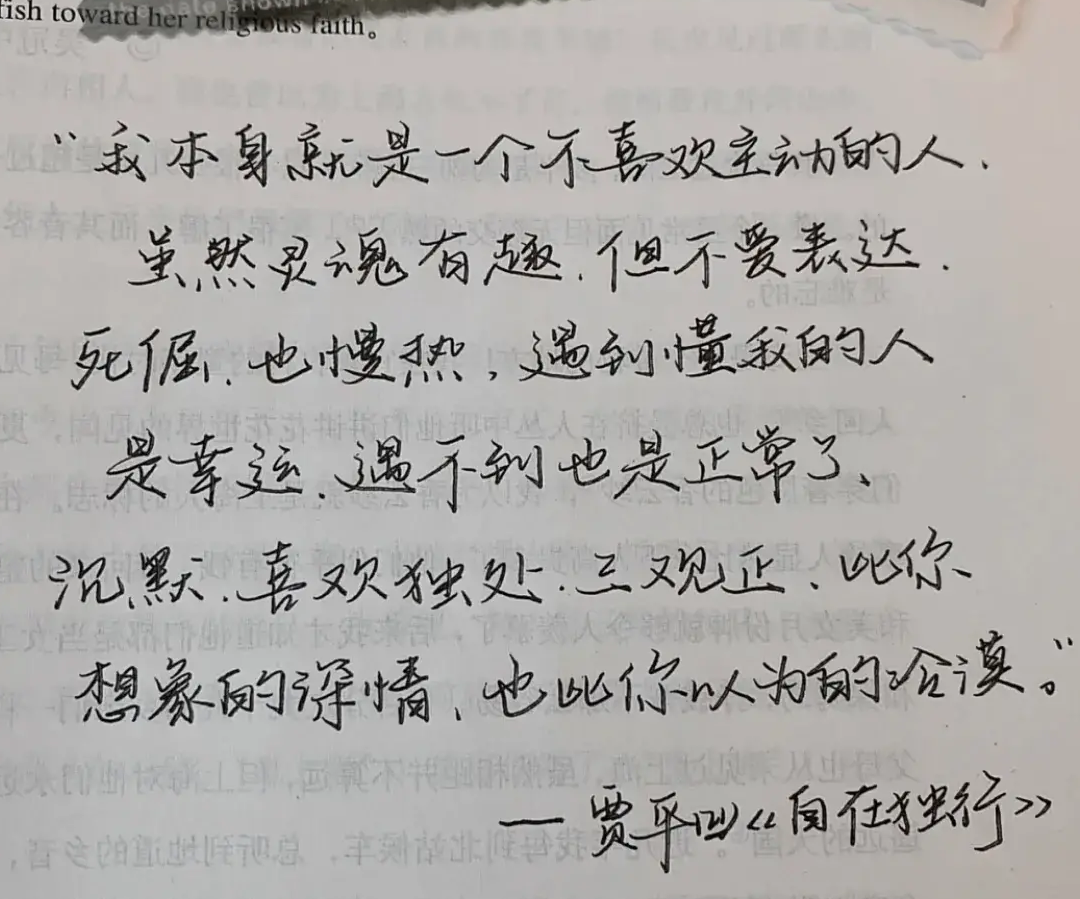 fish toward her religious faith。
"我本身就是一个不喜欢主动的人.
虽然灵魂有趣.但不爱表达.
死倔、也慢热，遇到懂我的人
是幸运.遇不到也是正常了、
沉默.喜欢独处.三观正、比你
想象的深情、也比你以为的冷漠。"
— 贾平凹《自在独行》